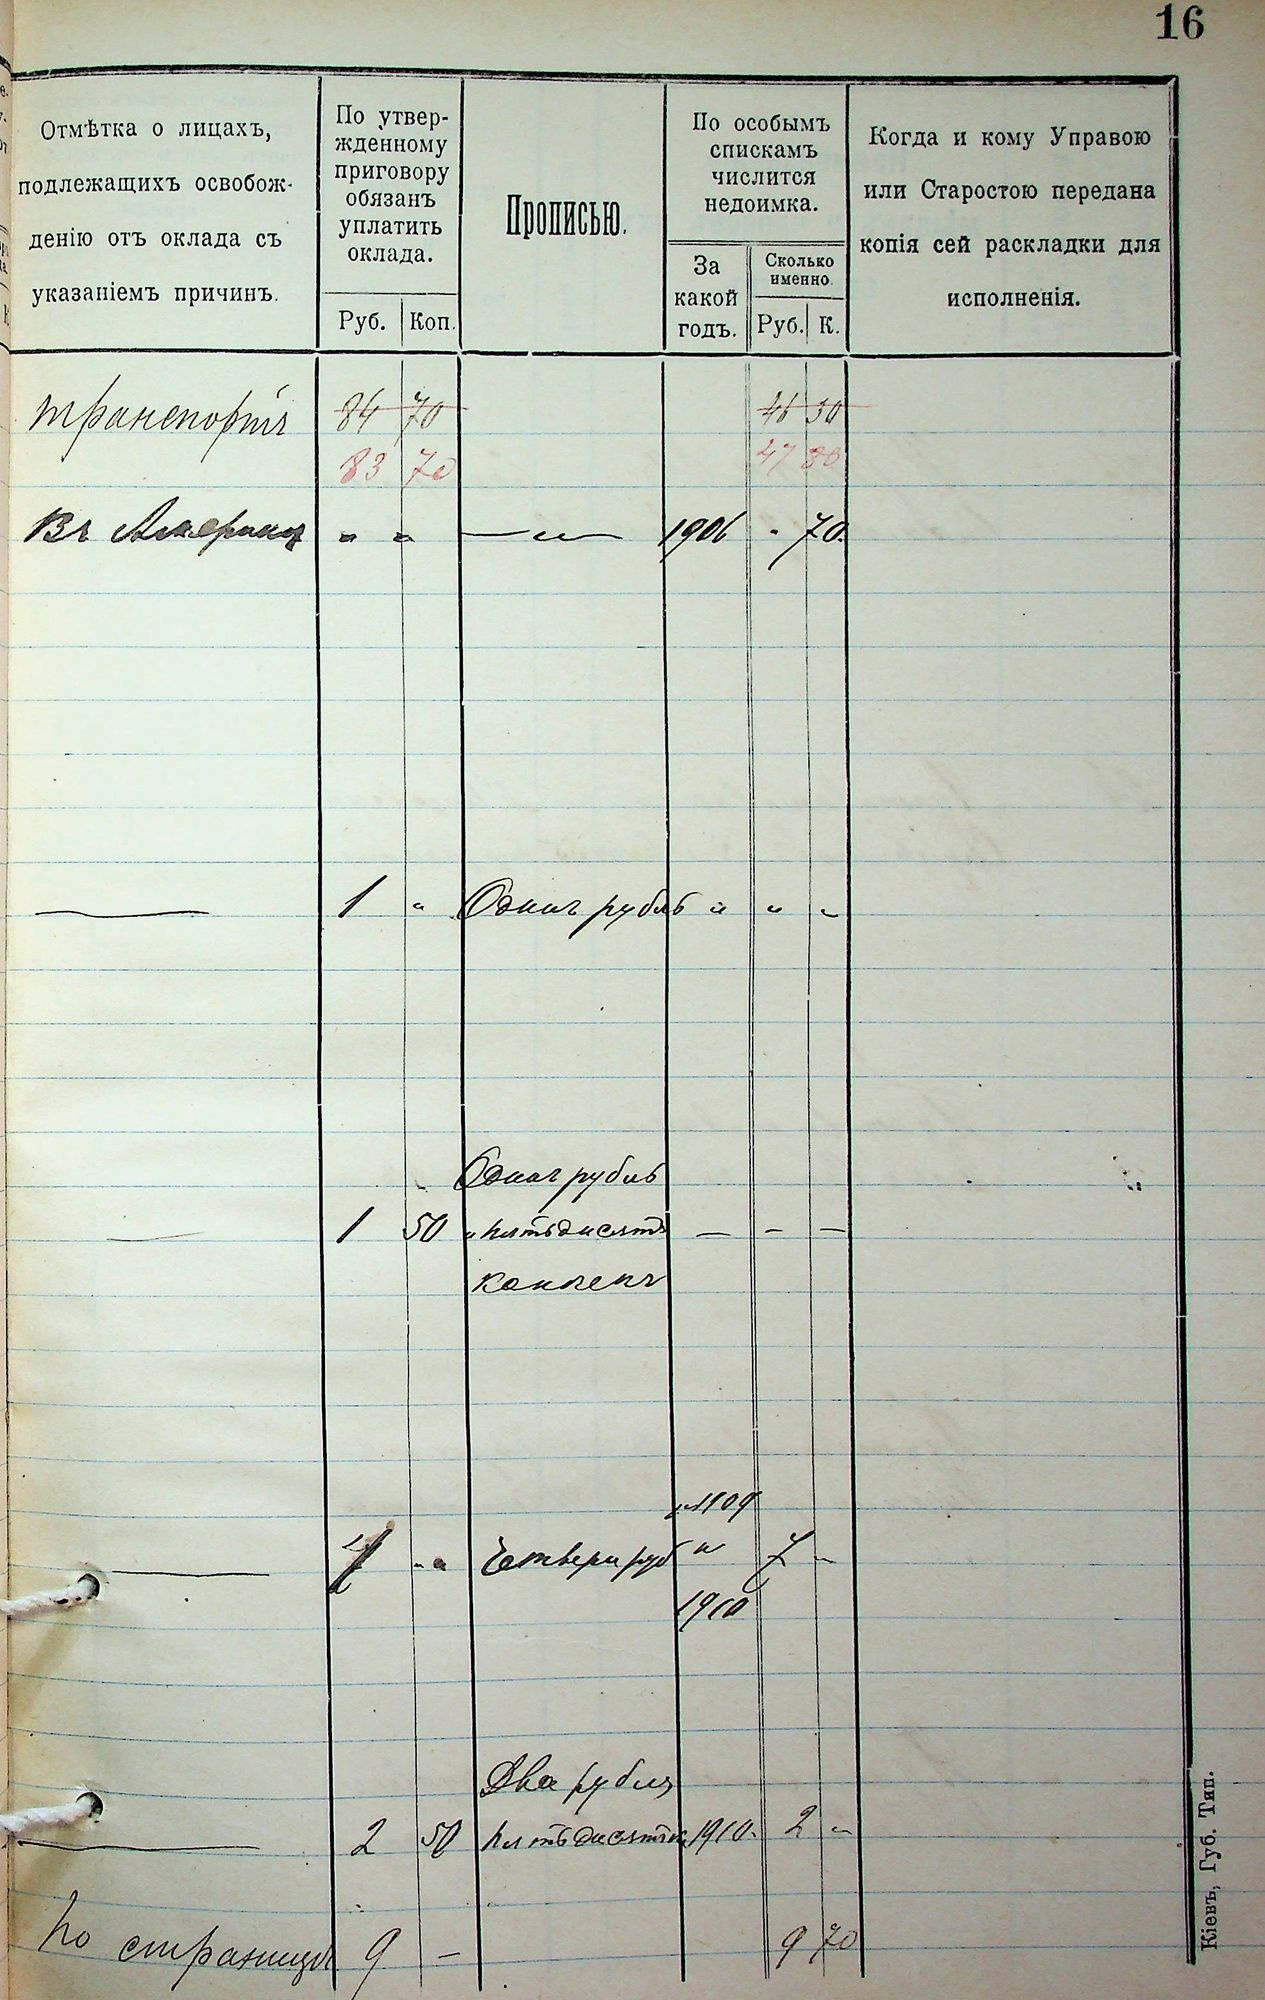 16
Отмѣтка о лицахъ,
подлежащихъ освобож-
денію отъ оклада съ
указаніемъ причинъ.
По утвер-
жденному
приговору
обязанъ
уплатить
оклада.
Руб. Коп.
Прописью.
По особымъ
спискамъ
числится
недоимка.
За
какой
годъ.
Сколько
именно.
Руб. К.
Когда и кому Управою
или Старостою передана
копія сей раскладки для
исполненія.
транспортъ 84 70 46 30
83 70 47 30
Въ Америкѣ " " — " — 1906 " 70.
1 " Одинъ рубль " " "
Одинъ рубль
1 50 и пятьдисятъ — — —
копѣекъ
1909
4 " Четыри руб и 7 "
1910
Два рубля
2 50 пятьдисятъ к 1910. 2 "
По страницѣ 9 — 9 70
Кіевъ, Губ. Тип.